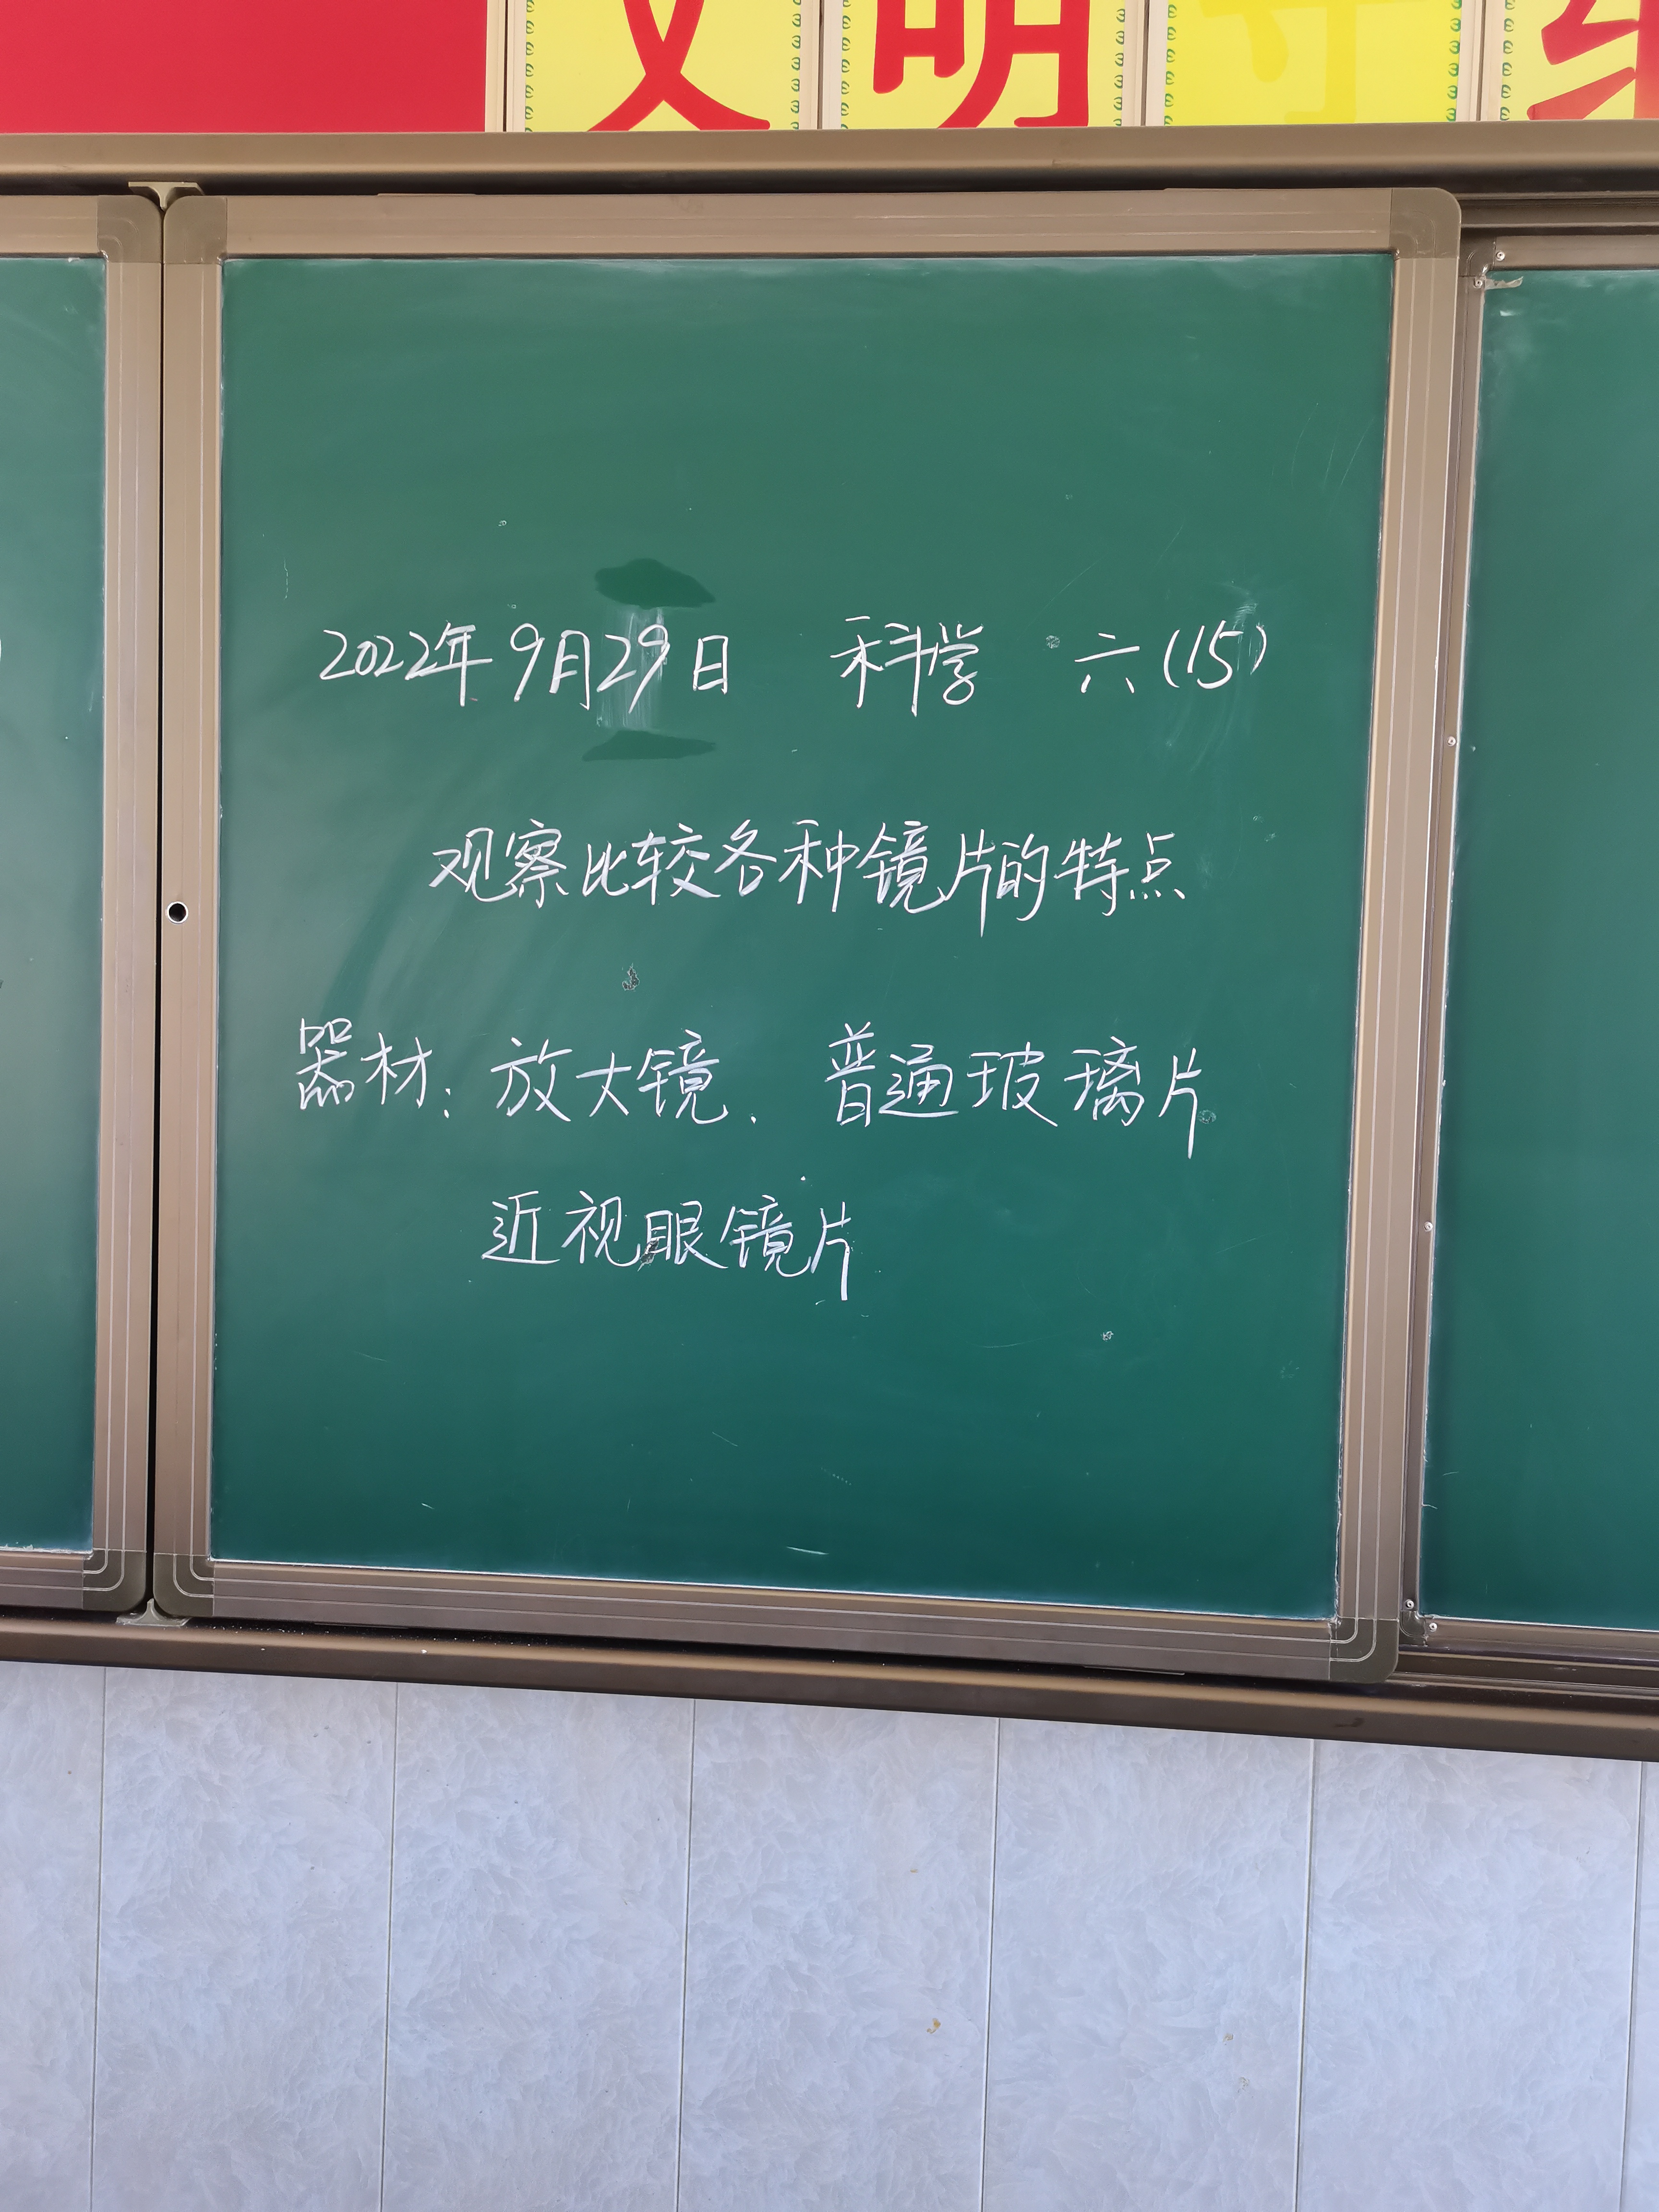 文明守纪
2022年9月29日 科学 六(15)
观察比较各种镜片的特点
器材：放大镜、普通玻璃片
近视眼镜片